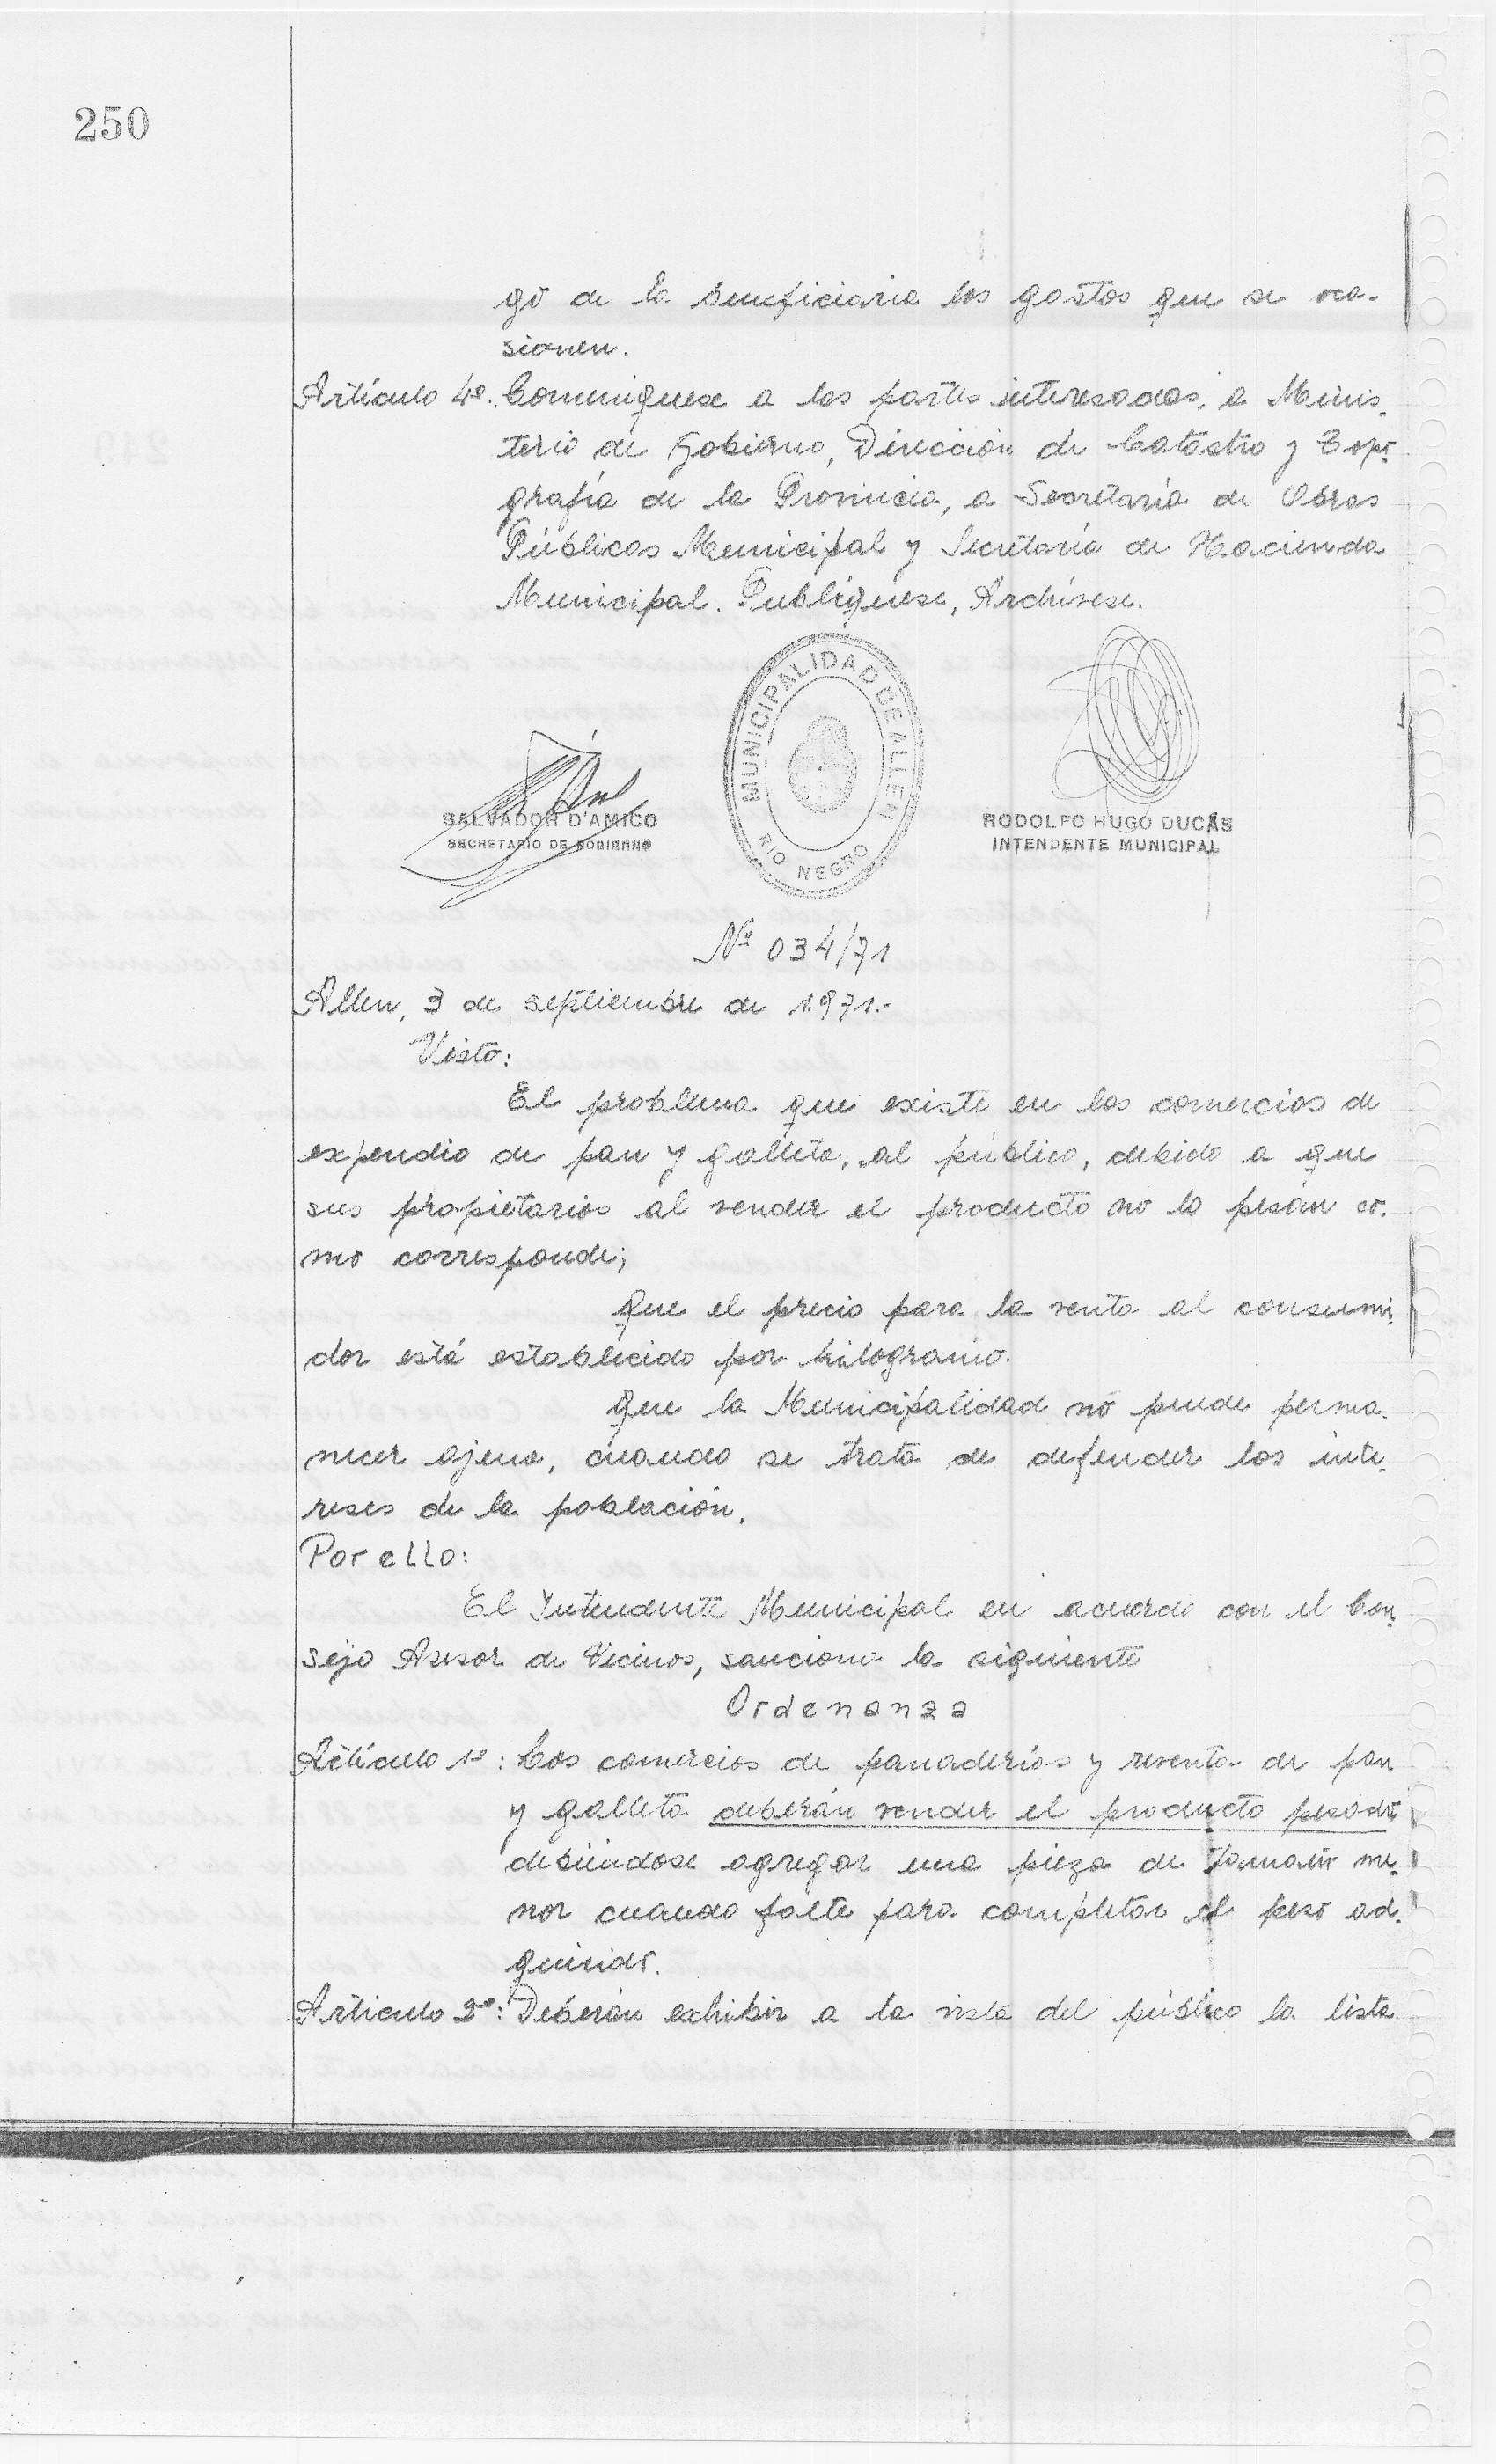 250
go de la beneficiaria los gastos que se oca-
sionen.
Artículo 4º. Comuníquese a las partes interesadas, a Minis-
terio de Gobierno, Dirección de Catastro y Topo-
grafía de la Provincia, a Secretaría de Obras
Públicas Municipal y Secretaría de Hacienda
Municipal. Publíquese, Archívese.
MUNICIPALIDAD DE ALLEN
RIO NEGRO
SALVADOR D'AMICO
SECRETARIO DE GOBIERNO
RODOLFO HUGO DUCÁS
INTENDENTE MUNICIPAL
Nº 034/71
Allen, 3 de septiembre de 1.971.-
Visto:
El problema que existe en los comercios de
expendio de pan y galleta, al público, debido a que
sus propietarios al vender el producto no lo pesan co-
mo corresponde;
que el precio para la venta al consumi-
dor está establecido por kilogramo.
que la Municipalidad no puede perma-
necer ajena, cuando se trata de defender los inte-
reses de la población,
Por ello:
El Intendente Municipal en acuerdo con el Con-
sejo Asesor de Vecinos, sanciona la siguiente
Ordenanza
Artículo 1º: Los comercios de panaderías y reventa de pan
y galleta deberán vender el producto pesado
debiéndose agregar una pieza de tamaño me-
nor cuando falte para completar el peso ad-
quirido.
Artículo 2º: Deberán exhibir a la vista del público la lista